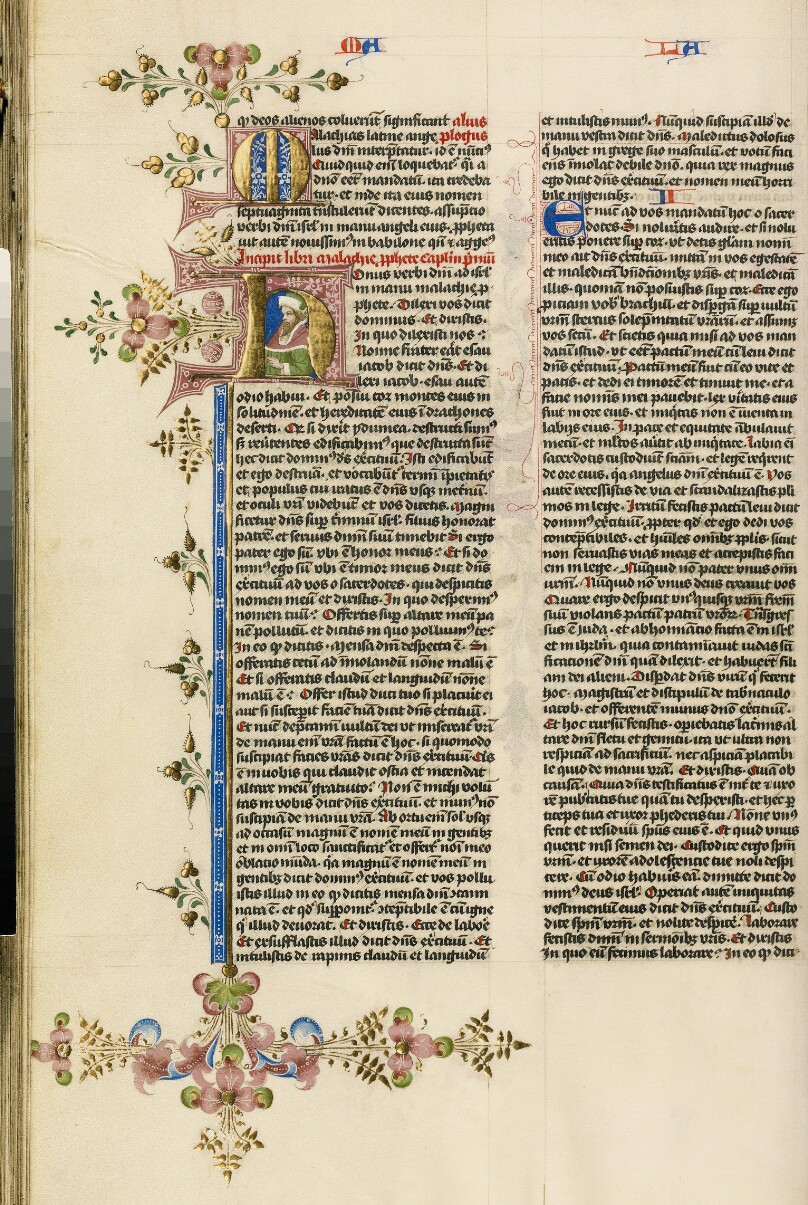 MA LA
q̄ deos alienos coluerūt significant alius
Malachias latine ange plogus
lus dn̄i interp̄tatur · id ē nūciꝰ
Quidquid eni loquebatᷣ qͥ a
dn̄o eēt mandatū · ita credeba
tur · et inde ita eius nomen
septuaginta trāstulerūt dicentes · assūptio
verbi dn̄i isrl̄ in manu angeli eius · ꝓpheta
Incipit libri malachie ꝓphete capl̄m p̄mū
Onus verbi dn̄i ad isrl̄
in manu malachie ꝓ
phete · Dilexi vos dicit
dominus · Et dixistis ·
In quo dilexisti nos ·
Nonne frater erāt esau
iacob dicit dn̄s · Et di
lexi iacob · esau autē
odio habui · Et posui eoꝝ montes eius in
solitudinē · et hereditatē eius ī drachones
deserti · Qꝛ si dixit ydumea · destructi sumꝰ
ſꝫ reūtentes edificabimꝰ que destructa sūt
hec dicit dominꝰ d̄s exercituū · Isti edificabūt
et ego destruā · et vocabūtᷣ termī īpietatis
et populus cui iratus ē dn̄s usqꝫ ī eternū ·
et oculi vr̄i videbūt · et vos dicetis · Magni
ficetur dn̄s sup̄ terminū isrl̄ · filius honorat
patrē · et servus dn̄m suū timebit Si ergo
pater ego sū · vbi ē honor meus · Et si do
minꝰ ego sū · vbi ē timor meus dicit dn̄s
exercituū ad vos o sacerdotes · qui despicitis
nomen meū · et dixistis · In quo desperimꝰ
nomen tuū · Offertis sup̄ altare meū pa
nē pollutū · et dicitis in quo polluimꝰ te ·
In eo qͩ dicitis · Mensa dn̄i despecta ē · Si
offeratis cecū ad īmolandū nōne malū ē
Et si offeratis claudū et languidū nōne
malū ē · Offer istud duci tuo si placuit ei
aut si susceperit faciē tuā dicit dn̄s exercituū ·
Et nūc depcamī vultū dei vt misereatᷣ vr̄i
de manu eni vr̄a factū ē hoc · si quomodo
suscipiat facies vr̄as dicit dn̄s exercituū · Qͥs
ē in vobis qui claudit ostia et incendat
altare meū gratuito · Non ē michi volū
tas in vobis dicit dn̄s exercituū · et munꝰ nō
suscipiā de manu vr̄a · Ab ortu eni sol̄ usqꝫ
ad occasū magnū ē nomē meū in gentibꝫ
et in omī loco sanctificatᷣ et offertᷣ noī meo
oblatio mūda · qa magnū ē nomē meū in
gentibꝫ dicit dominꝰ exercituū · et vos pollu
istis illud in eo qͩ dicitis mensa dn̄i ꝯtam
nata ē · et qd̄ sup̄ponitᷣ ꝯteptibile ē cū igne
q̄ illud devorat · Et dixistis · Ecce de laboē
Et exsufflastis illud dicit dn̄s exercituū · Et
intulistis de rapinis claudū et languidū
et intulistis munꝰ · Nūquid suscipiā illd̄ de
manu vestra dicit dn̄s · Maledictus dolosus
q̄ habet in grege suo masculū · et votū faci
ens īmolat debile dn̄o · quia rex magnus
ego dicit dn̄s exercituū · et nomen meū horri
bile in gentibꝫ · II
Et nūc ad vos mandatū hoc o sacer
dotes · Si nolūitis audire · et si nolu
eritis ponere sup̄ cor · vt detis glām nomī
meo ait dn̄s exercituū · mittā in vos egestatē
et maledicā bn̄dictōibꝫ vr̄is · et maledicā
illis · quoniā nō posuistis sup̄ cor · Ecce ego
ꝓiciam vobᷤ brachiū · et disp̄gā sup̄ vultū
vr̄m stercus solēpnitatū vr̄arū · et assumꝫ
vos secū · Et scietis quia misi ad vos man
datū istud · vt eēt pactū meū cū leui dicit
dn̄s exercituū · Pactū meū fuit cū eo vite et
pacis · et dedi ei timorē et timuit me · et a
facie nomīs mei pauebit · lex v̄itatis eius
fuit in ore eius · et iniqͥtas non ē inuenta in
labijs eius · In pace et equitate ābulauit
mecū · et ml̄tos auertit ab iniqͥtate · Labia eni
sacerdotis custodiūt sciām · et legē reqͥrent
de ore eius · qa angelus dn̄i exercituū ē · Vos
autē recessistis de via et scandalizastis pl̄i
mos in lege · Irritū fecistis pactū leui dicit
dominꝰ exercituū · ꝓpter qd̄ et ego dedi vos
contēptibiles · et hūiles omībꝫ ppl̄is · sicut
non seruastis vias meas et accepistis faci
em in lege · Nūquid nō pater vnus omī
vr̄m · Nūquid nō vnus deus creauit vos
Quare ergo despicit vnꝰquisqꝫ vr̄m fr̄em
suū violans pactū patrū vr̄oꝝ · Trāsgres
sus ē iuda · et abhomīacio facta ē in isrl̄
et in ihrl̄m · quia contaminauit iudas sc̄i
ficationē dn̄i quā dilexit · et habuit fili
am dei alieni · Disp̄dat dn̄s virū q̄ fecerit
hoc · magistrū et discipulū de tab̄naculo
iacob · et offerentē munus dn̄o exercituū ·
Et hoc rursū fecistis · opiebatis lac̄mis al
tare dn̄i fletu et gemitu · ita vt ultra non
respiciā ad sacrificiū · nec aspiciā placabi
le quid de manu vr̄a · Et dixistis · Quā ob
causā · Quia dn̄s testificatus ē int̄ te ⁊ uxo
rē pub̄tatis tue quā tu despexisti · et hec p
ticeps tua et uxor ph̄ederis tui · Nōne vnꝰ
fecit et residuū spūs eius ē · Et quid vnus
querit nisi semen dei · Custodite ergo spm̄
vr̄m · et uxorē adolescentie tue noli despi
cere · Cū odio habuis eā · dimitte dicit do
minꝰ deus isrl̄ · Operiat autē iniquitas
vestimentū eius dicit dn̄s exercituū · Custo
dite spm̄ vr̄m · et nolite despicē · Laborare
fecistis dn̄m in sermoībꝫ vr̄is · Et dixistis
In quo eū fecimus laborare · In eo qͩ dici